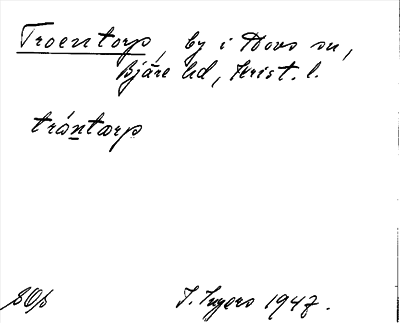 Troentorp, by i Hovs sn,
Bjäre hd, Krist. l.
tróntærp
SOp I. Ingers 1947.